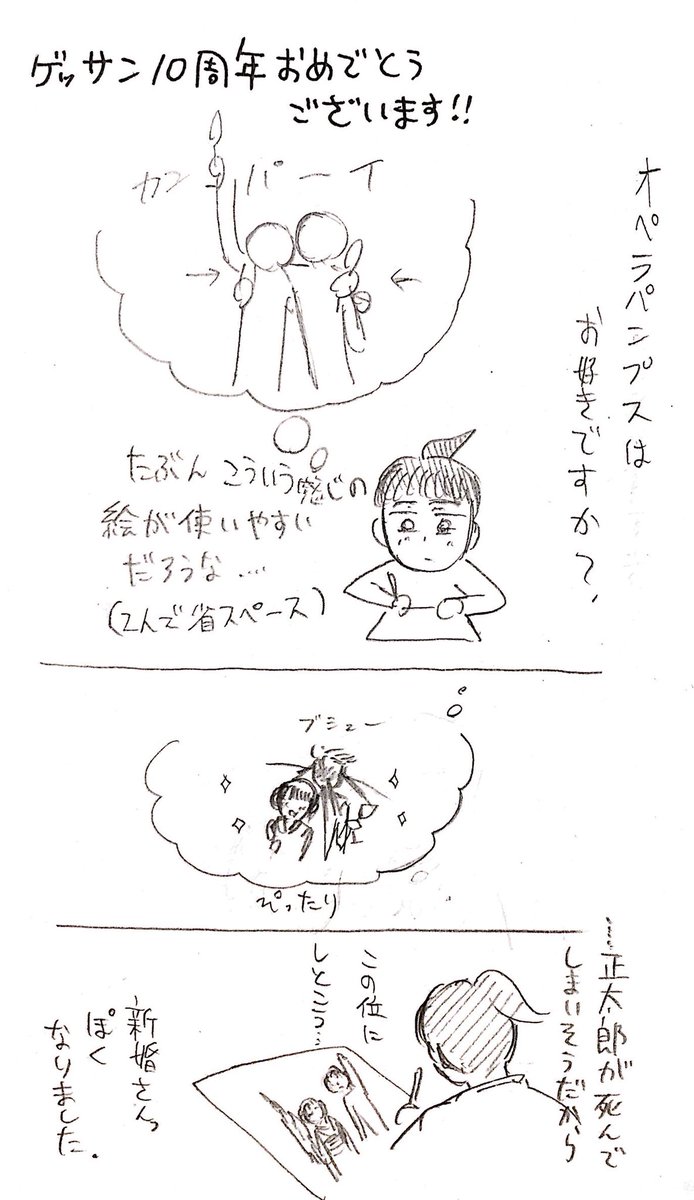 ゲッサン10周年おめでとう
ございます!!
オペラパンプスは
お好きですか?
カンパーイ
たぶんこういう感じの
絵が使いやすい
だろうな....
(2人で省スペース)
ブシュー
ぴったり
…正太郎が死んで
しまいそうだから
この位に
しとこう…
新婚さんっ
ぽく
なりました.